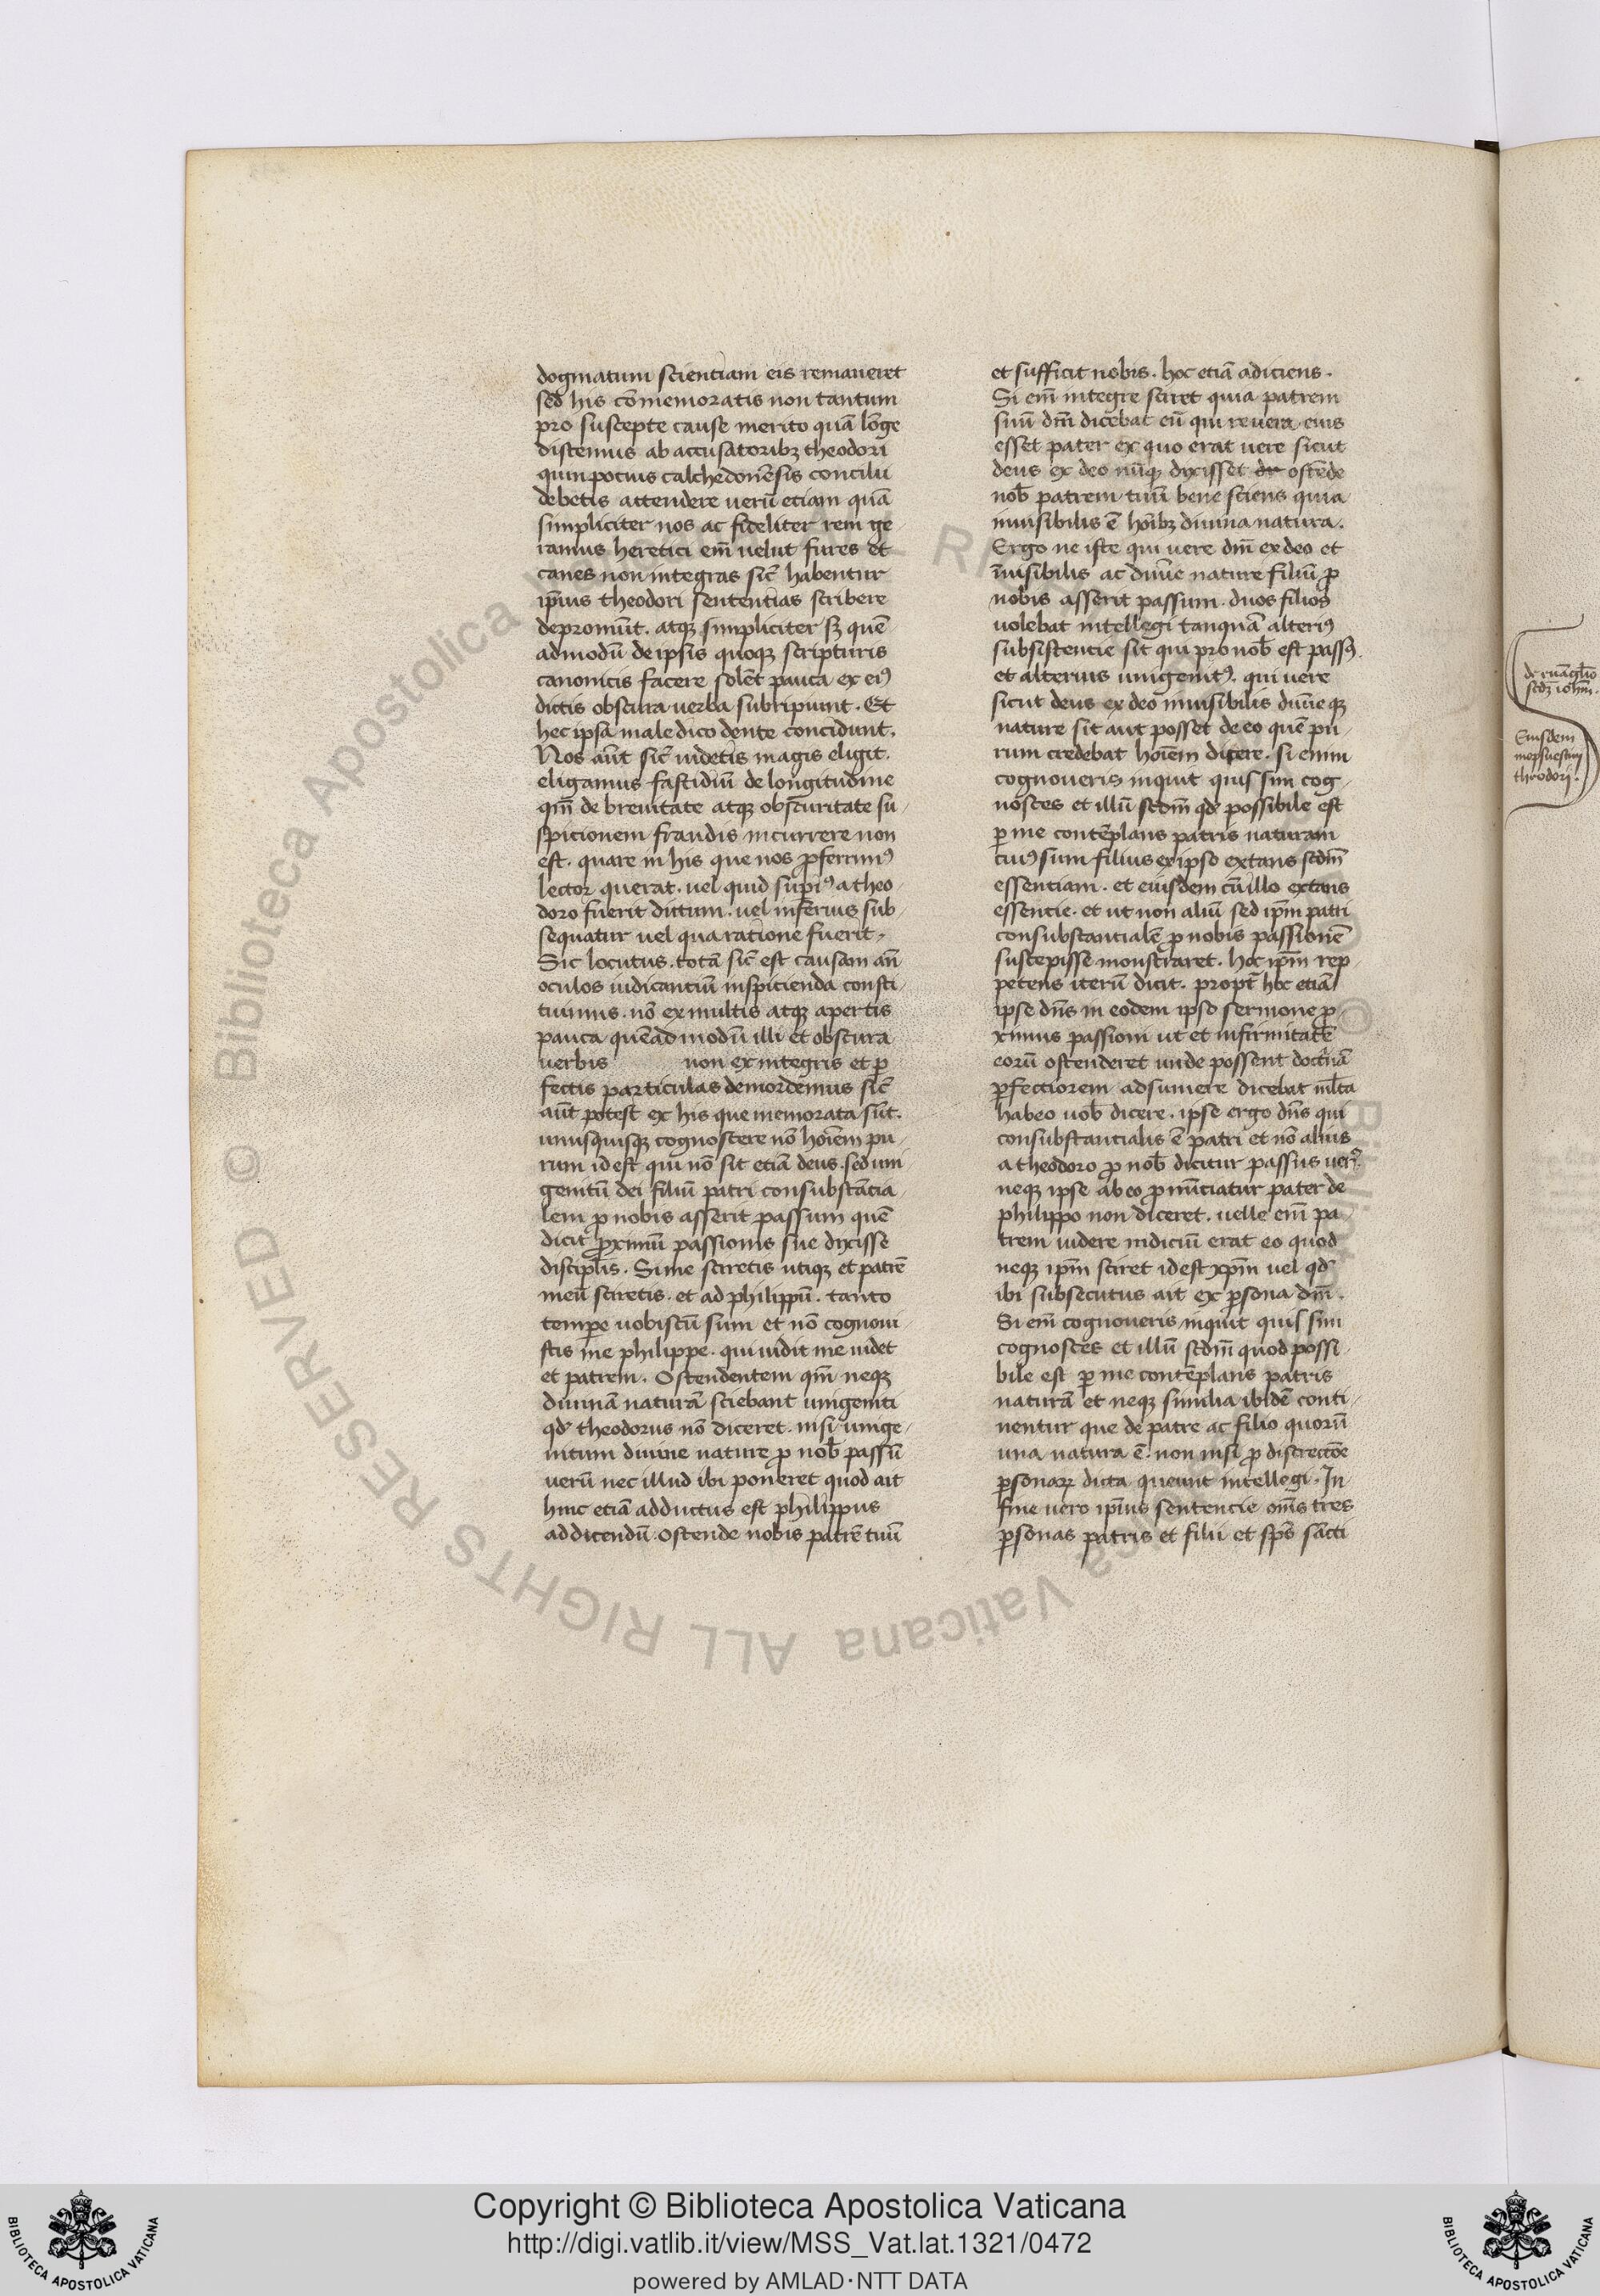 dogmatum scientiam eis remaneret
sed his cōmemoratis non tantum
pro suscepte cause merito quā lōge
distemus ab accusatoribꝫ theodori
quin pocius calchedonēsis concilii
debetis attendere uerū etiam quā
simpliciter nos ac fideliter rem ge
ramus heretici em̄ uelut fures et
canes non integras sic̄ habentur
ip̄ius theodori sententias scribere
depromūt. atqꝫ simpliciter sꝫ quē
admodū de ipsis quoqꝫ scripturis
canonicis facere solēt pauca ex eiꝰ
dictis obscura uerba subripiunt. Et
hec ipsa male dico dente concidunt.
Nos aūt sic̄ uidetis magis eligit.
eligamus fastidiū de longitudine
qm̄ de breuitate atqꝫ obscuritate su
spicionem fraudis incurrere non
est. quare in his que nos ꝓferimꝰ
lector querat. uel quid supiꝰ a theo
doro fuerit dictum. uel inferius sub
sequatur uel qua ratione fuerit
Sic locutus. totā sic̄ est causam an̄
oculos iudicantiū inspicienda consti
tuimus. nō ex multis atqꝫ apertis
pauca quēadmodū illi et obscura
uerbis non ex integris et ꝑ
fectis particulas demordemus sic̄
aūt potest ex his que memorata sūt.
unusquisqꝫ cognoscere nō hoīem pu
rum id est qui nō sit etiā deus. sed uni
genitū dei filiū patri consubstācia
lem ꝓ nobis asserit passum quē
dicit ꝓximū passionis sue dixisse
disciplīs. Si me sciretis utiqꝫ et patrē
meū sciretis. et ad philippū. tanto
tempe uobiscū sum et nō cognoui
stis me philippe. qui uidit me uidet
et patrem. Ostendentem qm̄ neqꝫ
diuinā naturā sciebant unigeniti
qd̛ theodorus nō diceret. nisi unige
nitum diuine nature ꝓ nob̄ passū
uerū nec illud ibi poneret quod ait
hinc etiā adductus est philippus
ad dicendū. ostende nobis patrē tuū
et sufficit nobis. hoc etiā adiciens.
Si em̄ integre sciret quia patrem
suū dm̄ dicebat eū qui reuera eius
esset pater ex quo erat uere sicut
deus ex deo nūqꝫ dixisset de ostēde
nob̄ patrem tuū bene sciens quia
inuisibilis ē hoībꝫ diuina natura.
Ergo ne iste qui uere dm̄ ex deo et
īuisibilis ac diuīe nature filiū ꝓ
nobis asserit passum. duos filios
uolebat intellegi tanquā alteriꝰ
subsistencie sit qui pro nob̄ est passꝰ.
et alterius unigenitꝰ. qui uere
sicut deus ex deo inuisibilis diuīe qꝫ
nature sit aut posset de eo quē pu
rum credebat hoīem dicere. si enim
cognoueris inquit quis sim cog
nosces et illū scdm̄ qd̛ possibile est
ꝑ me contēplans patris naturam
cuiꝰ sum filius ex ipso extans scdm̄
essentiam. et eiusdem cū illo extans
essencie. et ut non aliū sed ip̄m patri
consubstancialē ꝓ nobis passionē
suscepisse monstraret. hoc ip̄m rep
petens iterū dicit. propt̄ hoc etiā
ipse dn̄s in eodem ipso sermone ꝓ
ximus passioni ut et infirmitatē
eorū ostenderet unde possent doctinā
ꝑfectiorem adsumere dicebat ml̄ta
habeo uob̄ dicere. ipse ergo dn̄s qui
consubstancialis ē patri et nō alius
a theodoro ꝓ nob̄ dicitur passus uerꝰ.
neqꝫ ipse ab eo ꝓnūciatur pater de
philippo non diceret. uelle em̄ pa
trem uidere indiciū erat eo quod
neqꝫ ip̄m sciret id est xp̄m uel qd̛
ibi subsecutus ait ex ꝑsona dn̄i.
Si em̄ cognoueris inquit quis sim
cognosces et illū scdm̄ quod possi
bile est ꝑ me contēplans patris
naturā et neqꝫ similia ibidē conti
nentur que de patre ac filio quorū
una natura ē. non nisi ꝓ discrectōe
ꝑsonaꝝ dicta queunt intellegi. In
fine uero ip̄ius sentencie om̄s tres
ꝑsonas patris et filii et sp̄s sāncti
de euāgl̄io
scdꝫ ioh̄m.
Eiusdem
mopsuesteni
theodori.
© Biblioteca Apostolica Vaticana ALL RIGHTS RESERVED
Copyright © Biblioteca Apostolica Vaticana
http://digi.vatlib.it/view/MSS_Vat.lat.1321/0472
powered by AMLAD·NTT DATA
BIBLIOTECA APOSTOLICA VATICANA
BIBLIOTECA APOSTOLICA VATICANA